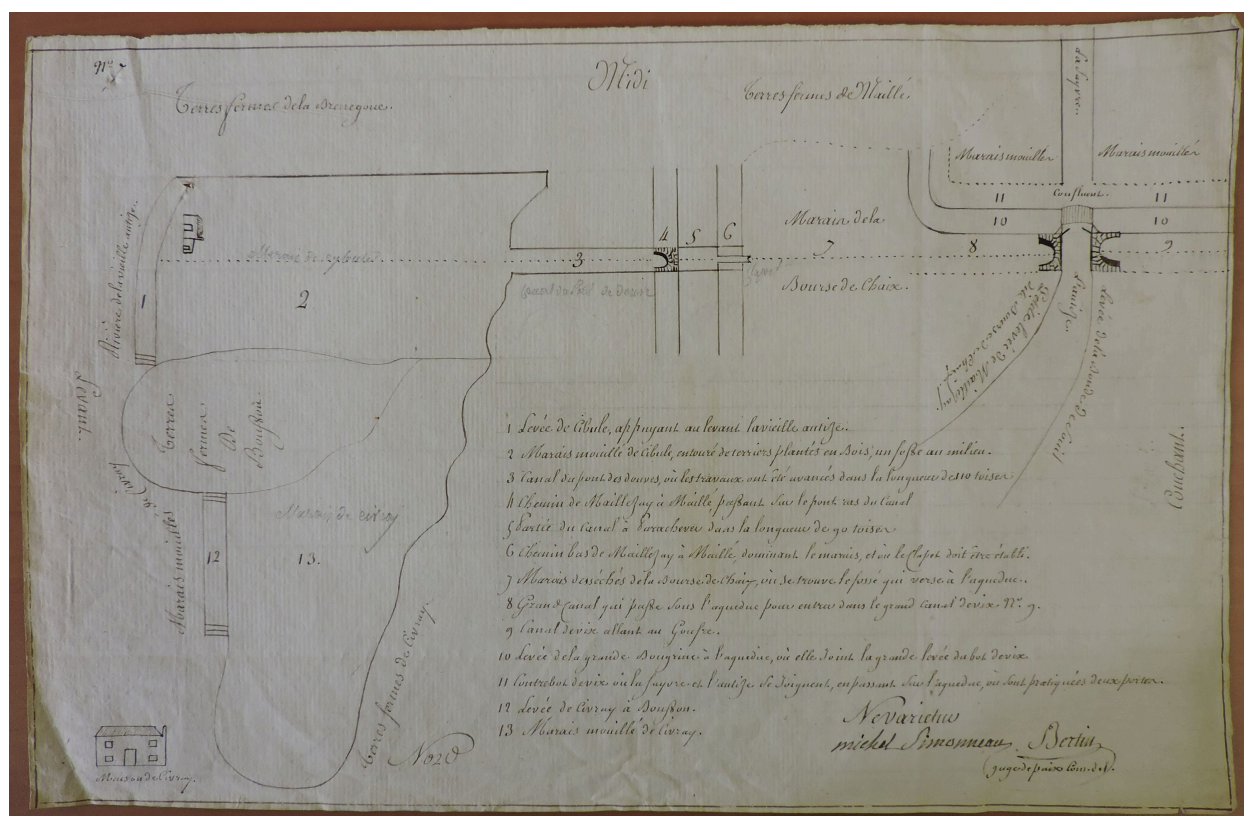 N.o 7
Midi
Terres fermes de la Brenegoue.
Terres fermes de Maillé.
La Sayvre.
Marais mouillés
Marais mouillés
Confluent
11
11
10
10
Rivière de la vieille autize.
1
Marais de Cybule
2
3
4
5
6
Canal du Pont des Douves
Clapet
Marais de la
7
Bourse de Chaix.
8
9
L'autize
Petite levée de Maillezay,
dite Bourse de Chaix.
Levée de la
Levant.
Couchant.
Terres
fermes
De
Bousson
de Civray
Marais mouillés
12
Marais de civray
13.
Terres fermes de Civray.
Nord
Maison de Civray.
1 Levée de Cibule, appuyant au levant la vieille autize.
2 Marais mouillé de Cibule, entouré de terriers plantés en Bois, un fossé au milieu.
3 Canal du pont des douves, où les travaux ont été avancés dans la longueur de 110 toises
4 Chemin de Maillezay à Maillé passant sur le pont ras du Canal
5 Partie du Canal à Parachever dans la longueur de 90 toises
6 Chemin bas de Maillezay à Maillé, dominant le marais, et où le Clapet doit être établi.
7 Marais desséchés de la Bourse de Chaix, où se trouve le fossé qui verse à l'aqueduc.
8 Grand Canal qui passe sous l'aqueduc pour entrer dans le grand canal de vix N.o 9.
9 Canal de vix allant au Goufre.
10 Levée de la grande Bougrine à l'aqueduc, où elle Joint la grande levée du bot de vix
11 Contrebot de vix où la sayvre et l'autize se Joignent, en passant sur l'aqueduc, où sont pratiquées deux portes.
12 Levée de Civray à Bousson.
13 Marais mouillé de Civray.
Nevarietur
michel Simonneau Bertin
Juge de paix Com. del.